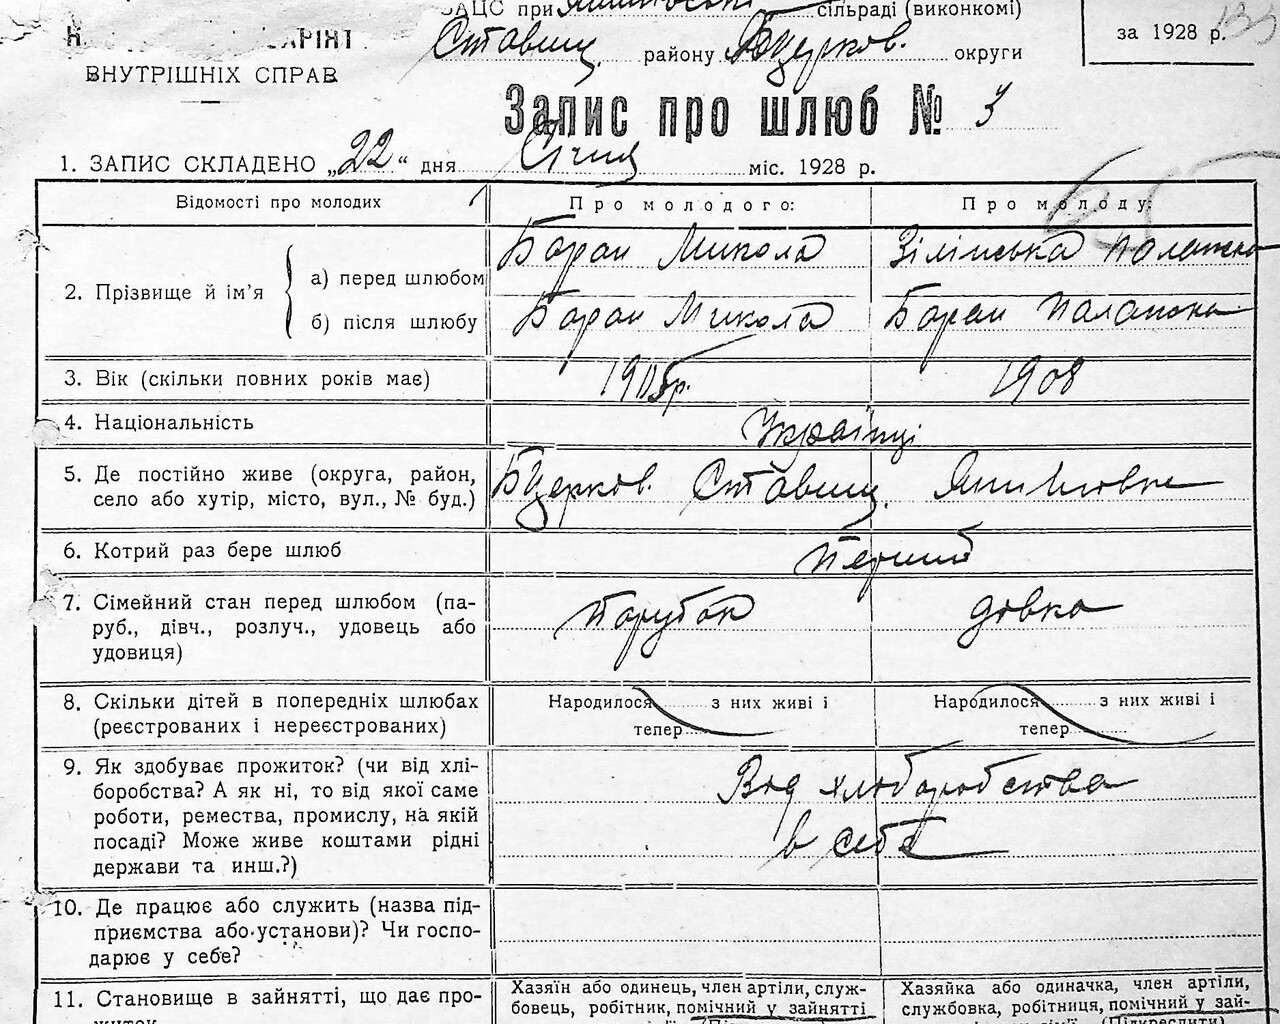 ЗАЦС при сільраді (виконкомі)
Ставищ. району Бцерков. округи
за 1928 р.
ВНУТРІШНІХ СПРАВ
Запис про шлюб № 3
1. ЗАПИС СКЛАДЕНО „22“ дня Січня міс. 1928 р.
Відомості про молодих
Про молодого:
Про молоду:
2. Прізвище й ім’я
а) перед шлюбом
Баран Микола
Зілінська Палажка
б) після шлюбу
Баран Микола
Баран Палажка
3. Вік (скільки повних років має)
1905р.
1908
4. Національність
Українці
5. Де постійно живе (округа, район,
село або хутір, місто, вул., № буд.)
Бцерков. Ставищ.
6. Котрий раз бере шлюб
Перший
7. Сімейний стан перед шлюбом (па-
руб., дівч., розлуч., удовець або
удовиця)
Парубок
дівка
8. Скільки дітей в попередніх шлюбах
(реєстрованих і нереєстрованих)
Народилося з них живі і
тепер
Народилося з них живі і
тепер
9. Як здобуває прожиток? (чи від хлі-
боробства? А як ні, то від якої саме
роботи, ремества, промислу, на якій
посаді? Може живе коштами рідні
держави та инш.?)
Від хлібаробства
в себе
10. Де працює або служить (назва під-
приємства або установи)? Чи госпо-
дарює у себе?
11. Становище в зайнятті, що дає про-
житок
Хазяїн або одинець, член артіли, служ-
бовець, робітник, помічний у зайнятті
Хазяйка або одиначка, член артіли,
службовка, робітниця, помічний у зай-